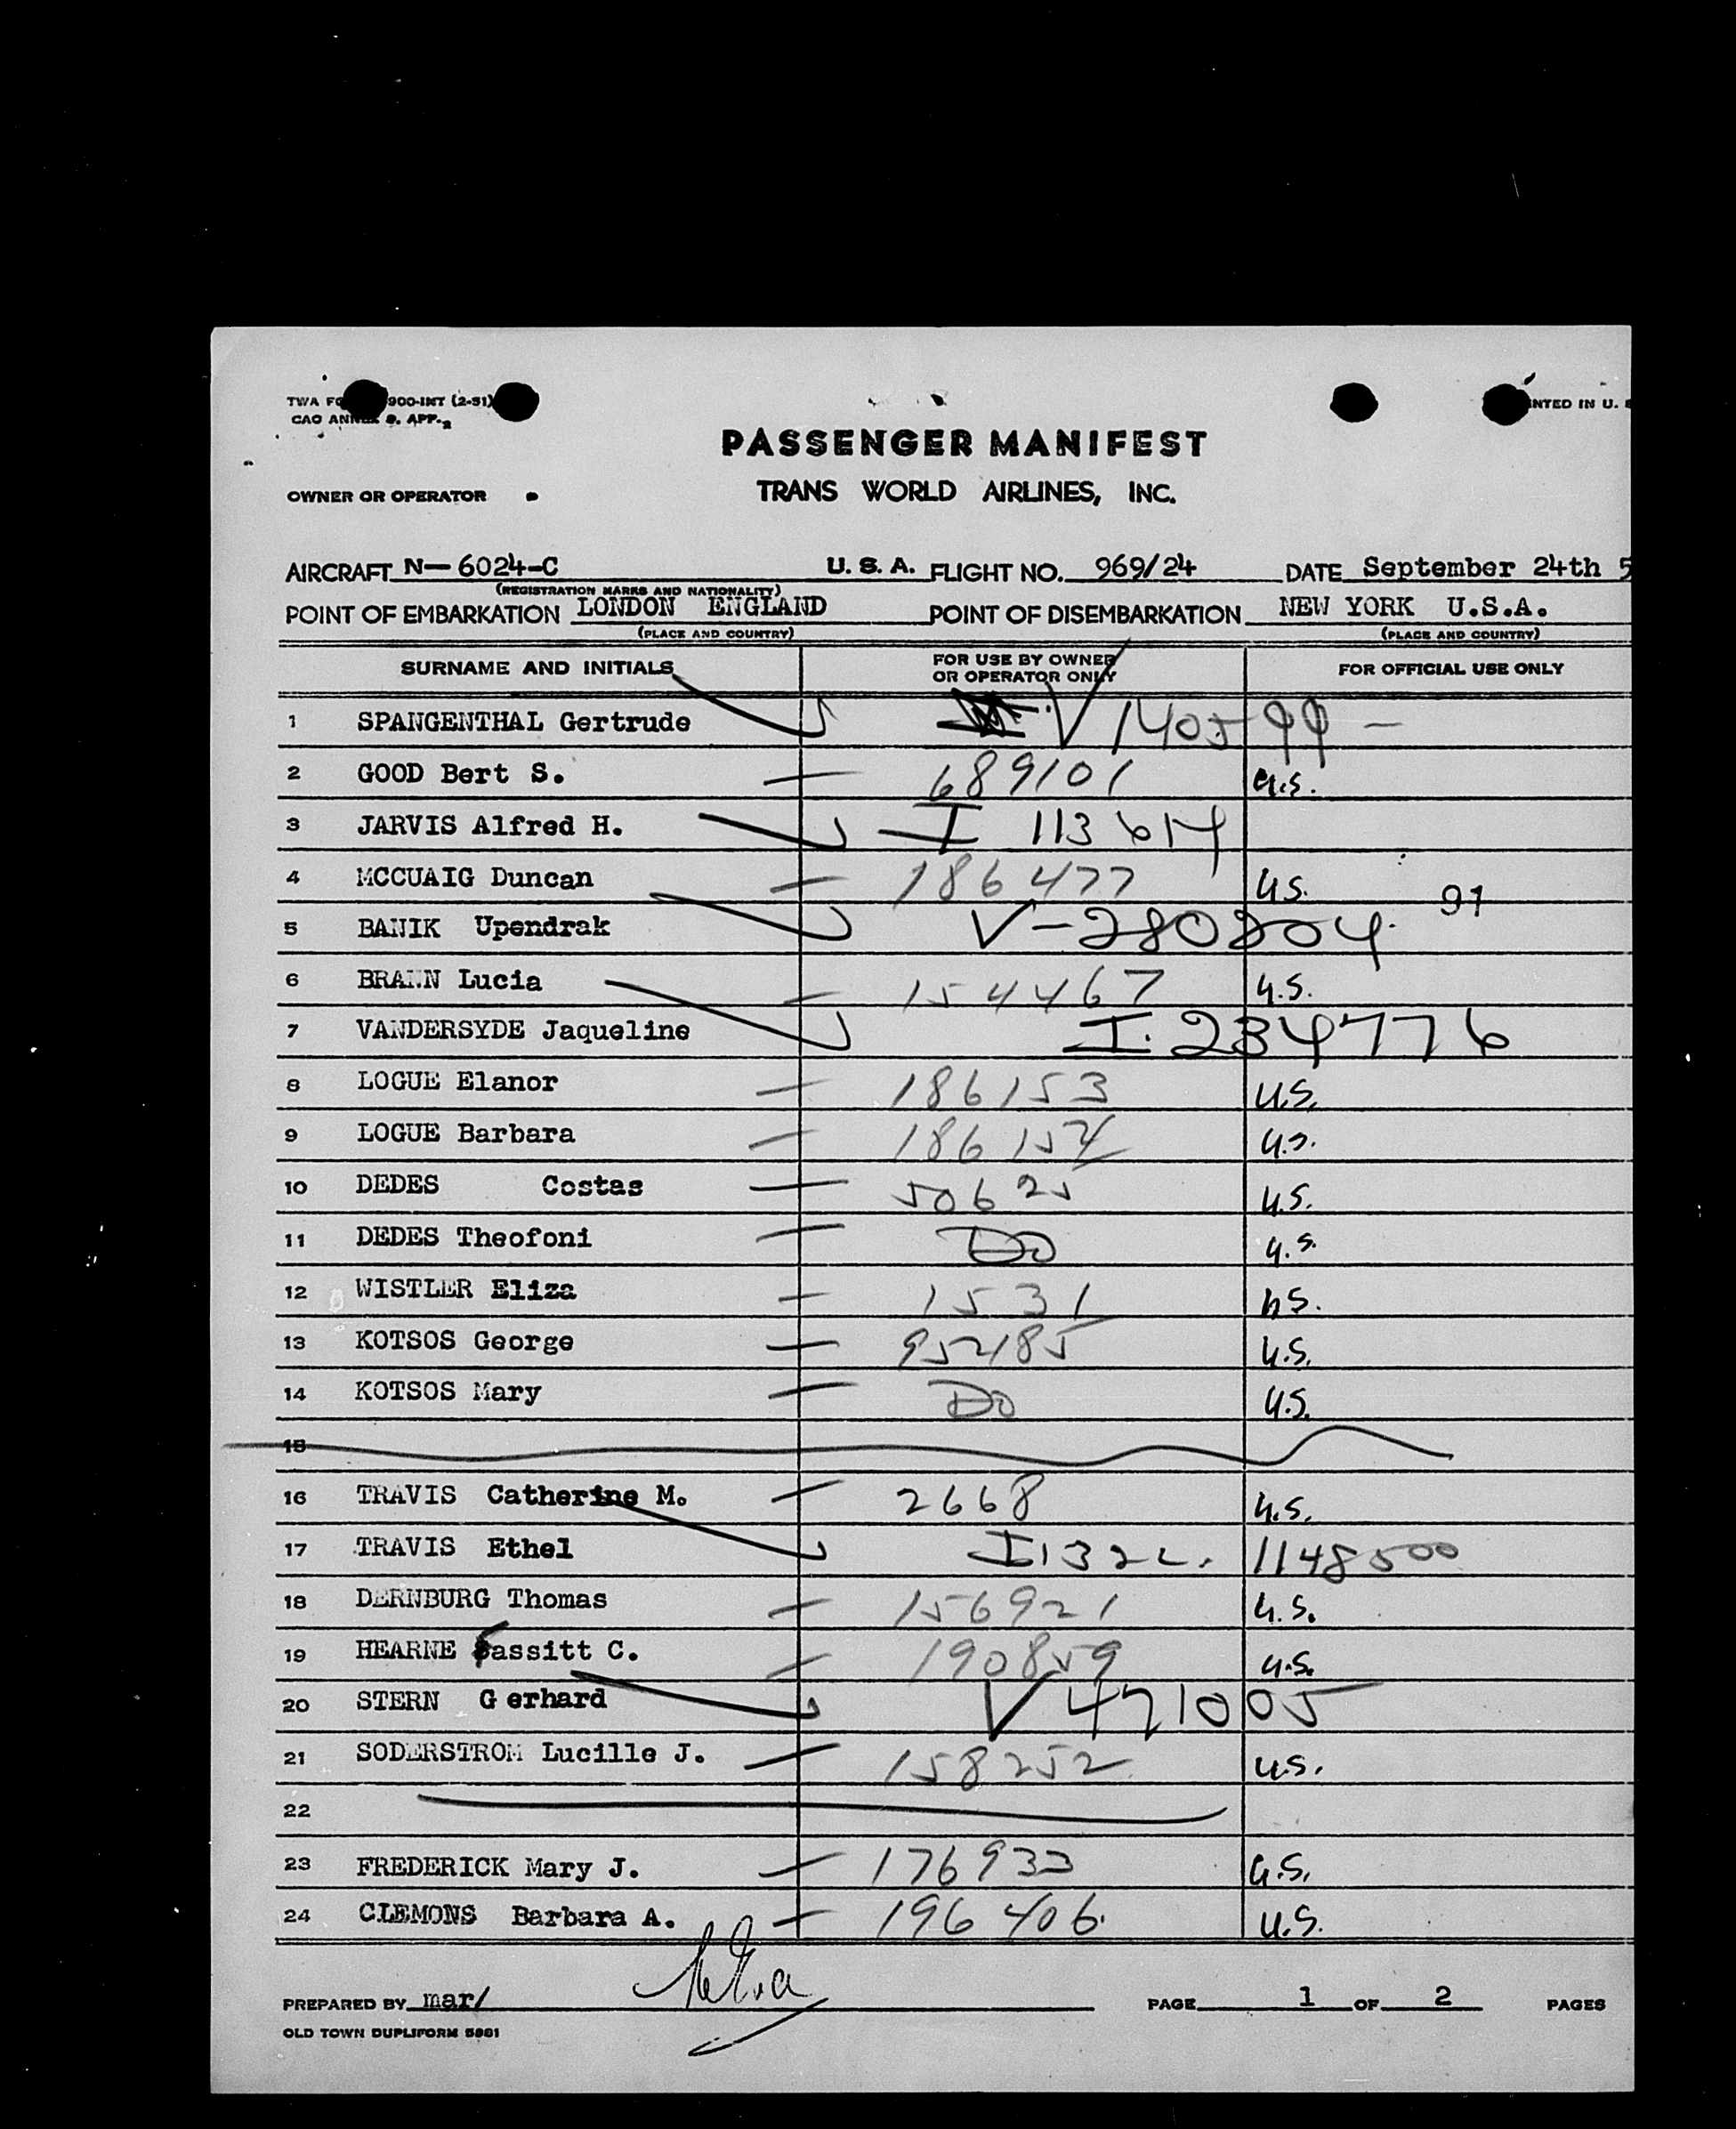 TWA FO 900-INT (2-51)
CAO ANNEX 9. APP. 2
NTED IN U. S
PASSENGER MANIFEST
OWNER OR OPERATOR TRANS WORLD AIRLINES, INC.
AIRCRAFT N-6024-C U. S. A. FLIGHT NO. 969/24 DATE September 24th 5
(REGISTRATION MARKS AND NATIONALITY)
POINT OF EMBARKATION LONDON ENGLAND POINT OF DISEMBARKATION NEW YORK U.S.A.
(PLACE AND COUNTRY) (PLACE AND COUNTRY)
SURNAME AND INITIALS FOR USE BY OWNER OR OPERATOR ONLY FOR OFFICIAL USE ONLY
1 SPANGENTHAL Gertrude V 1405499 -
2 GOOD Bert S. — 689101 U.S.
3 JARVIS Alfred H. I 113614
4 MCCUAIG Duncan — 186477 U.S. 91
5 BANIK Upendrak V-280204
6 BRAUN Lucia — 154467 U.S.
7 VANDERSYDE Jaqueline I. 234776
8 LOGUE Elanor — 186153 U.S.
9 LOGUE Barbara — 186154 U.S.
10 DEDES Costas — 50625 U.S.
11 DEDES Theofoni — DO U.S.
12 WISTLER Eliza — 1531 U.S.
13 KOTSOS George — 952185 U.S.
14 KOTSOS Mary — DO U.S.
15
16 TRAVIS Catherine M. — 2668 U.S.
17 TRAVIS Ethel I 1322. 1148500
18 DERNBURG Thomas — 156921 U.S.
19 HEARNE Fassitt C. — 190859 U.S.
20 STERN Gerhard V 471005
21 SODERSTROM Lucille J. — 158252 U.S.
22
23 FREDERICK Mary J. — 176933 U.S.
24 CLEMONS Barbara A. — 196406. U.S.
PREPARED BY mar/ PAGE 1 OF 2 PAGES
OLD TOWN DUPLIFORM 5881